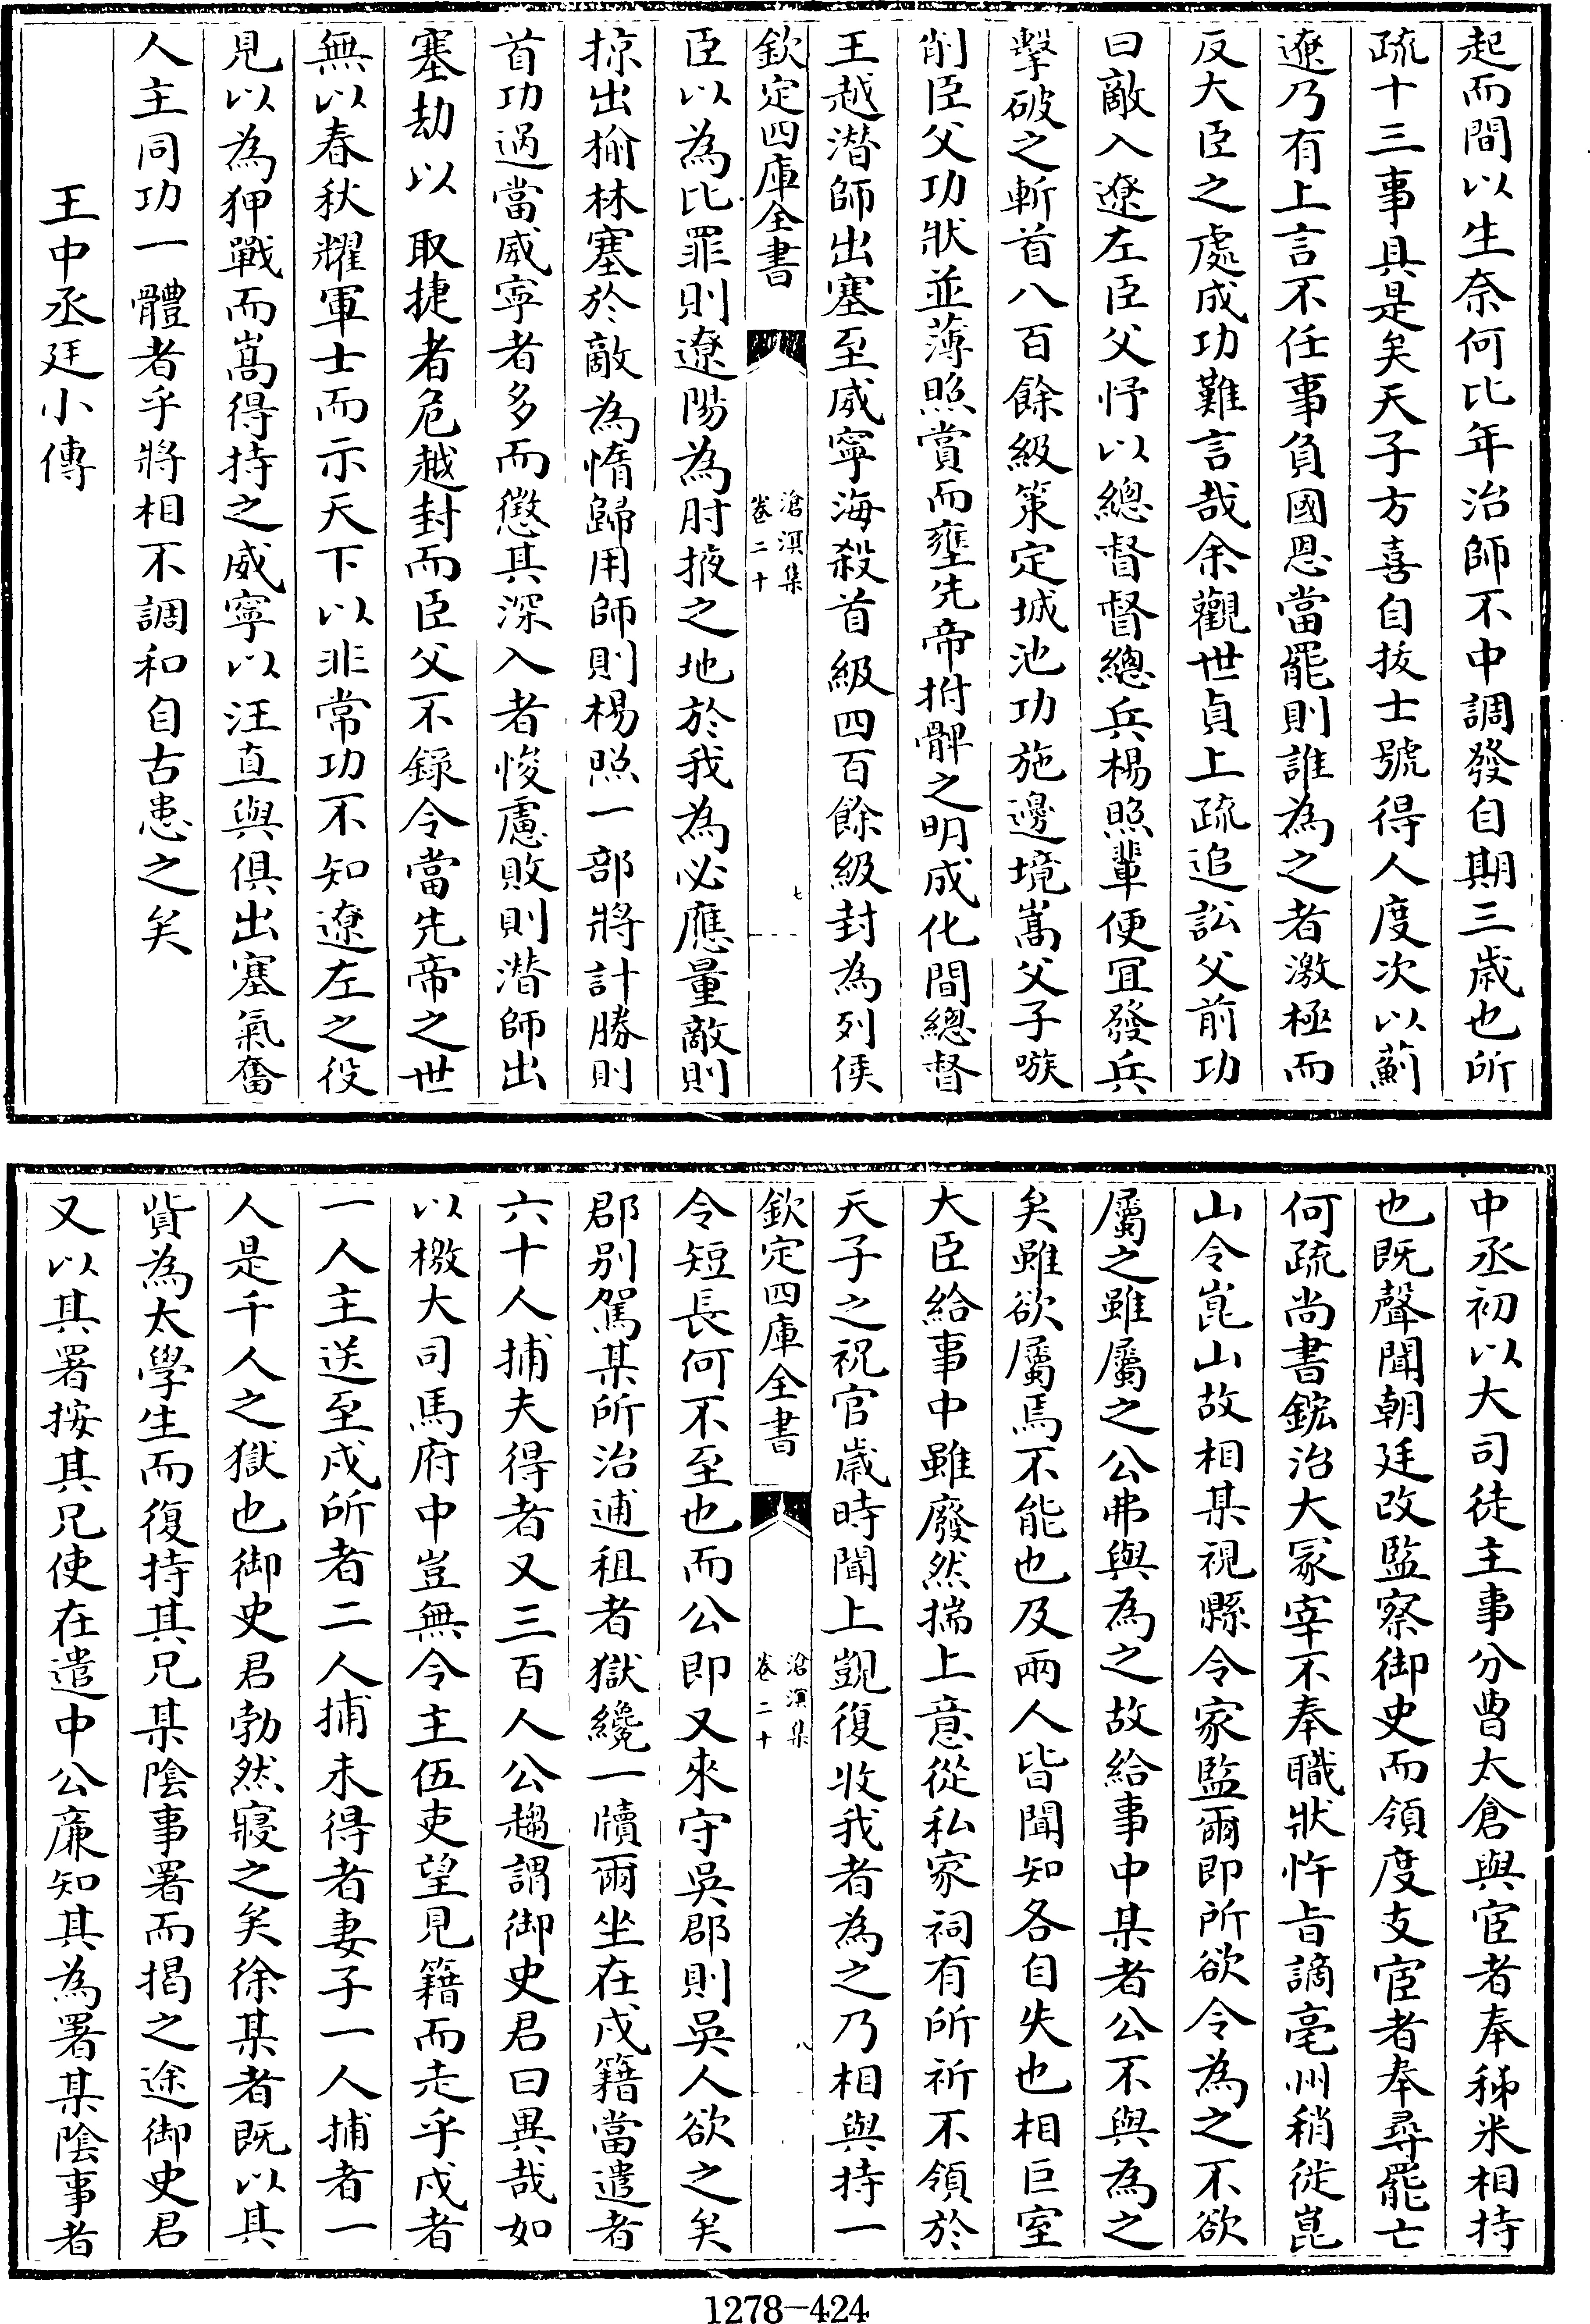 起而間以生奈何比年治師不中調發自期三歳也所
疏十三事具是矣天子方喜自抜士號得人度次以薊
遼乃有上言不任事負國恩當罷則誰為之者激極而
反大臣之處成功難言哉余觀世貞上疏追訟父前功
曰敵入遼左臣父忬以總督督總兵楊照輩便冝發兵
擊破之斬首八百餘級策定城池功施邊境嵩父子嗾
削臣父功狀並薄照賞而壅先帝拊髀之明成化間總督
王越潛師出塞至威寧海殺首級四百餘級封為列侯
欽定四庫全書
滄溟集
卷二十
七
臣以為比罪則遼陽為肘掖之地於我為必應量敵則
掠出榆林塞於敵為惰歸用師則楊照一部將計勝則
首功過當威寧者多而懲其深入者悛慮敗則潛師出
塞劫以取捷者危越封而臣父不錄令當先帝之世
無以春秋耀軍士而示天下以非常功不知遼左之役
見以為狎戰而嵩得持之威寧以汪直與俱出塞氣奮
人主同功一體者乎將相不調和自古患之矣
王中丞廷小傳
中丞初以大司徒主事分曹太倉與宦者奉稊米相持
也既聲聞朝廷改監察御史而領度支宦者奉尋罷亡
何疏尚書鋐治大冢宰不奉職狀忤㫖謫亳州稍徙崑
山令崑山故相某視縣令家監爾即所欲令為之不欲
屬之雖屬之公弗與為之故給事中某者公不與為之
矣雖欲屬焉不能也及兩人皆聞知各自失也相巨室
大臣給事中雖廢然揣上意從私家祠有所祈不領於
天子之祝官歳時聞上覬復收我者為之乃相與持一
欽定四庫全書
滄溟集
卷二十
八
令短長何不至也而公即又來守吳郡則吳人欲之矣
郡别駕某所治逋租者獄纔一牘爾坐在戍籍當遣者
六十人捕夫得者又三百人公趨謂御史君曰異哉如
以檄大司馬府中豈無令主伍吏望見籍而走乎戍者
一人主送至戍所者二人捕未得者妻子一人捕者一
人是千人之獄也御史君勃然寢之矣徐某者既以其
貲為太學生而復持其兄某陰事署而揭之途御史君
又以其署按其兄使在遣中公亷知其為署某陰事者
1278-424